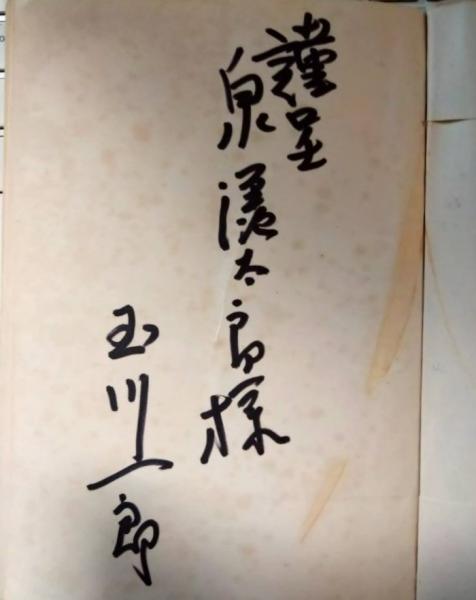 謹呈
泉漾太郎様
玉川一郎